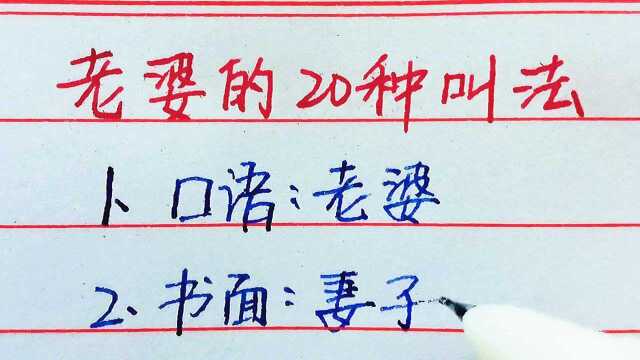 老婆的20种叫法
1、口语:老婆
2、书面:妻子